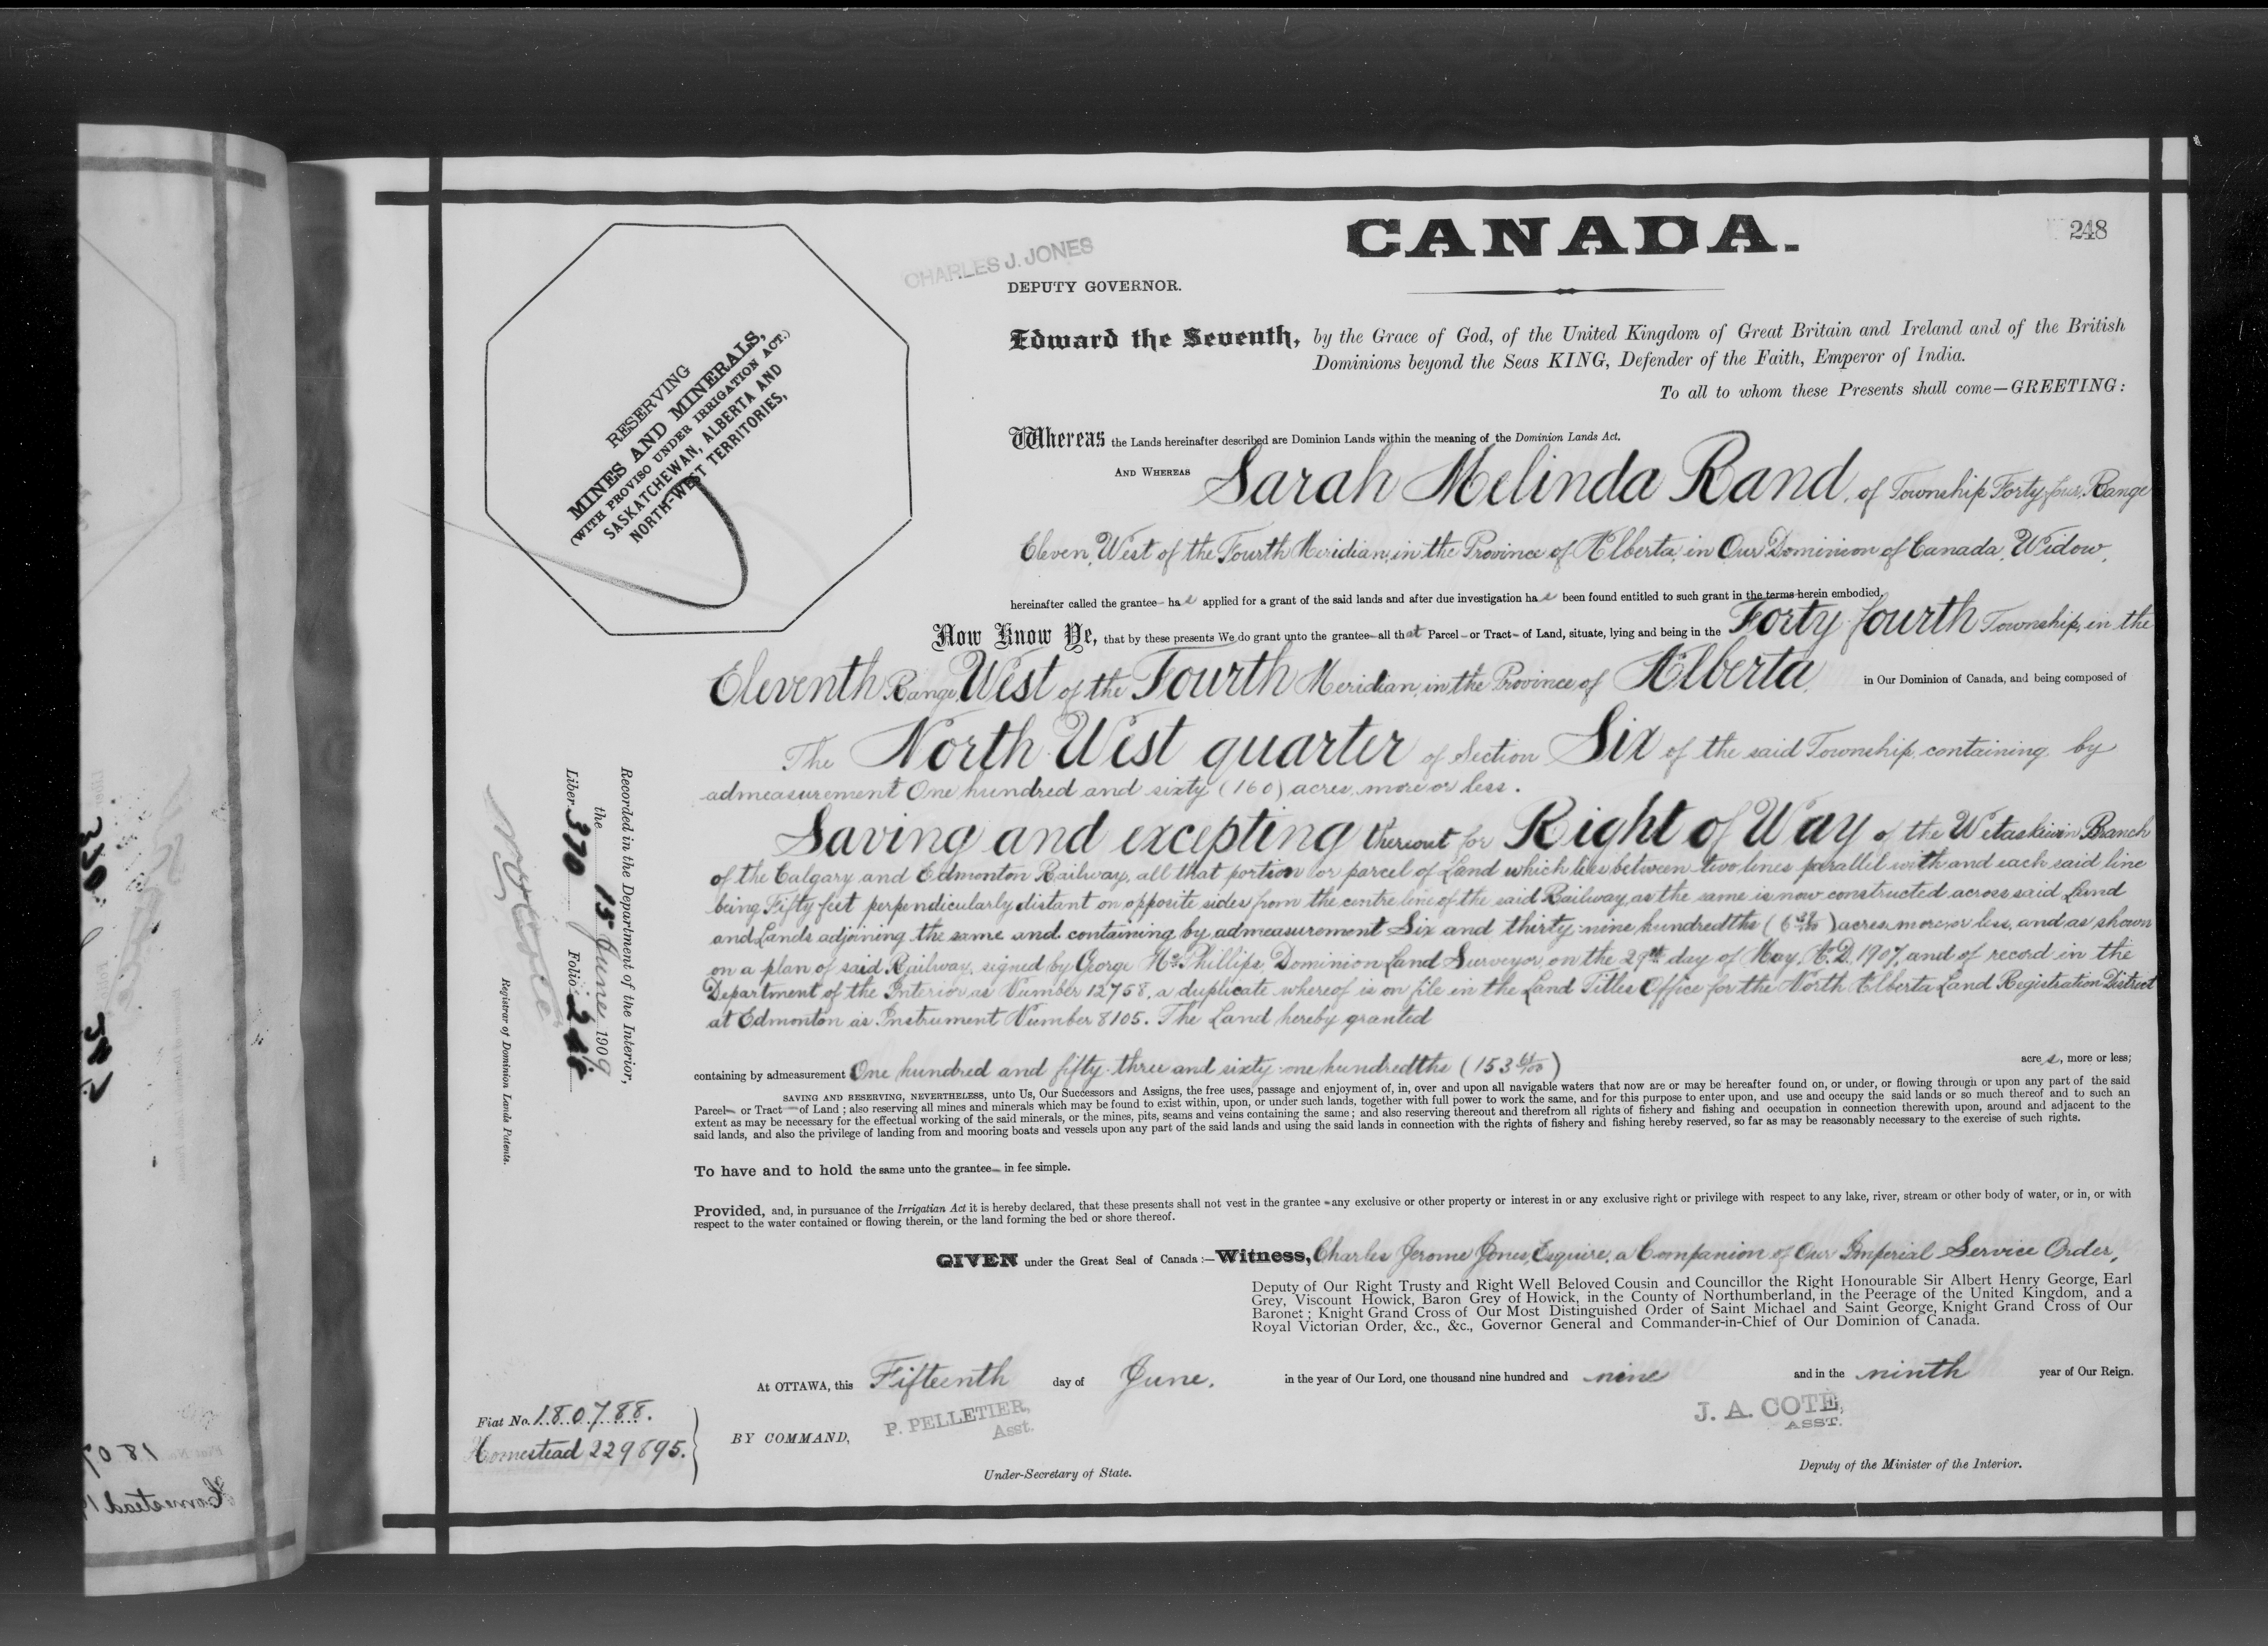 CANADA.
248
CHARLES J. JONES
DEPUTY GOVERNOR.
RESERVING
MINES AND MINERALS,
(WITH PROVISO UNDER IRRIGATION ACT.)
SASKATCHEWAN, ALBERTA AND
NORTH-WEST TERRITORIES,
Edward the Seventh, by the Grace of God, of the United Kingdom of Great Britain and Ireland and of the British
Dominions beyond the Seas KING, Defender of the Faith, Emperor of India.
To all to whom these Presents shall come—GREETING:
Whereas the Lands hereinafter described are Dominion Lands within the meaning of the Dominion Lands Act.
AND WHEREAS Sarah Melinda Rand, of Township Forty-four, Range
Eleven, West of the Fourth Meridian, in the Province of Alberta, in Our Dominion of Canada, Widow,
hereinafter called the grantee— has applied for a grant of the said lands and after due investigation has been found entitled to such grant in the terms herein embodied.
Now Know Ye, that by these presents We do grant unto the grantee—all that Parcel— or Tract— of Land, situate, lying and being in the Forty-fourth Township, in the
Eleventh Range, West of the Fourth Meridian, in the Province of Alberta, in Our Dominion of Canada, and being composed of
The North West quarter of Section Six of the said Township, containing by
admeasurement One hundred and sixty (160) acres, more or less.
Saving and excepting thereout for Right of Way of the Wetaskiwin Branch
of the Calgary and Edmonton Railway, all that portion or parcel of Land which lies between two lines parallel with and each said line
being Fifty feet perpendicularly distant on opposite sides from the centre line of the said Railway, as the same is now constructed across said Land
and Lands adjoining the same and containing by admeasurement Six and thirty-nine hundredths (6 39/100) acres, more or less, and as shown
on a plan of said Railway, signed by George Mc Phillips, Dominion Land Surveyor, on the 29th day of May, A.D. 1907, and of record in the
Department of the Interior as Number 12758, a duplicate whereof is on file in the Land Titles Office for the North Alberta Land Registration District
at Edmonton as Instrument Number 8105. The Land hereby granted
containing by admeasurement One hundred and fifty-three and sixty-one hundredths (153 61/100) acres, more or less;
SAVING AND RESERVING, NEVERTHELESS, unto Us, Our Successors and Assigns, the free uses, passage and enjoyment of, in, over and upon all navigable waters that now are or may be hereafter found on, or under, or flowing through or upon any part of the said
Parcel— or Tract— of Land; also reserving all mines and minerals which may be found to exist within, upon, or under such lands, together with full power to work the same, and for this purpose to enter upon, and use and occupy the said lands or so much thereof and to such an
extent as may be necessary for the effectual working of the said minerals, or the mines, pits, seams and veins containing the same; and also reserving thereout and therefrom all rights of fishery and fishing and occupation in connection therewith upon, around and adjacent to the
said lands, and also the privilege of landing from and mooring boats and vessels upon any part of the said lands and using the said lands in connection with the rights of fishery and fishing hereby reserved, so far as may be reasonably necessary to the exercise of such rights.
To have and to hold the same unto the grantee— in fee simple.
Provided, and, in pursuance of the Irrigatian Act it is hereby declared, that these presents shall not vest in the grantee—any exclusive or other property or interest in or any exclusive right or privilege with respect to any lake, river, stream or other body of water, or in, or with
respect to the water contained or flowing therein, or the land forming the bed or shore thereof.
GIVEN under the Great Seal of Canada:—Witness, Charles Jerome Jones, Esquire, a Companion of Our Imperial Service Order,
Deputy of Our Right Trusty and Right Well Beloved Cousin and Councillor the Right Honourable Sir Albert Henry George, Earl
Grey, Viscount Howick, Baron Grey of Howick, in the County of Northumberland, in the Peerage of the United Kingdom, and a
Baronet; Knight Grand Cross of Our Most Distinguished Order of Saint Michael and Saint George, Knight Grand Cross of Our
Royal Victorian Order, &c., &c., Governor General and Commander-in-Chief of Our Dominion of Canada.
At OTTAWA, this Fifteenth day of June, in the year of Our Lord, one thousand nine hundred and nine and in the ninth year of Our Reign.
BY COMMAND,
P. PELLETIER,
Asst.
Under-Secretary of State.
J. A. COTÉ,
ASST.
Deputy of the Minister of the Interior.
Fiat No. 180788.
Homestead 229895.
Recorded in the Department of the Interior,
the 15 June 1909
Liber 370 Folio 248.
Registrar of Dominion Lands Patents.